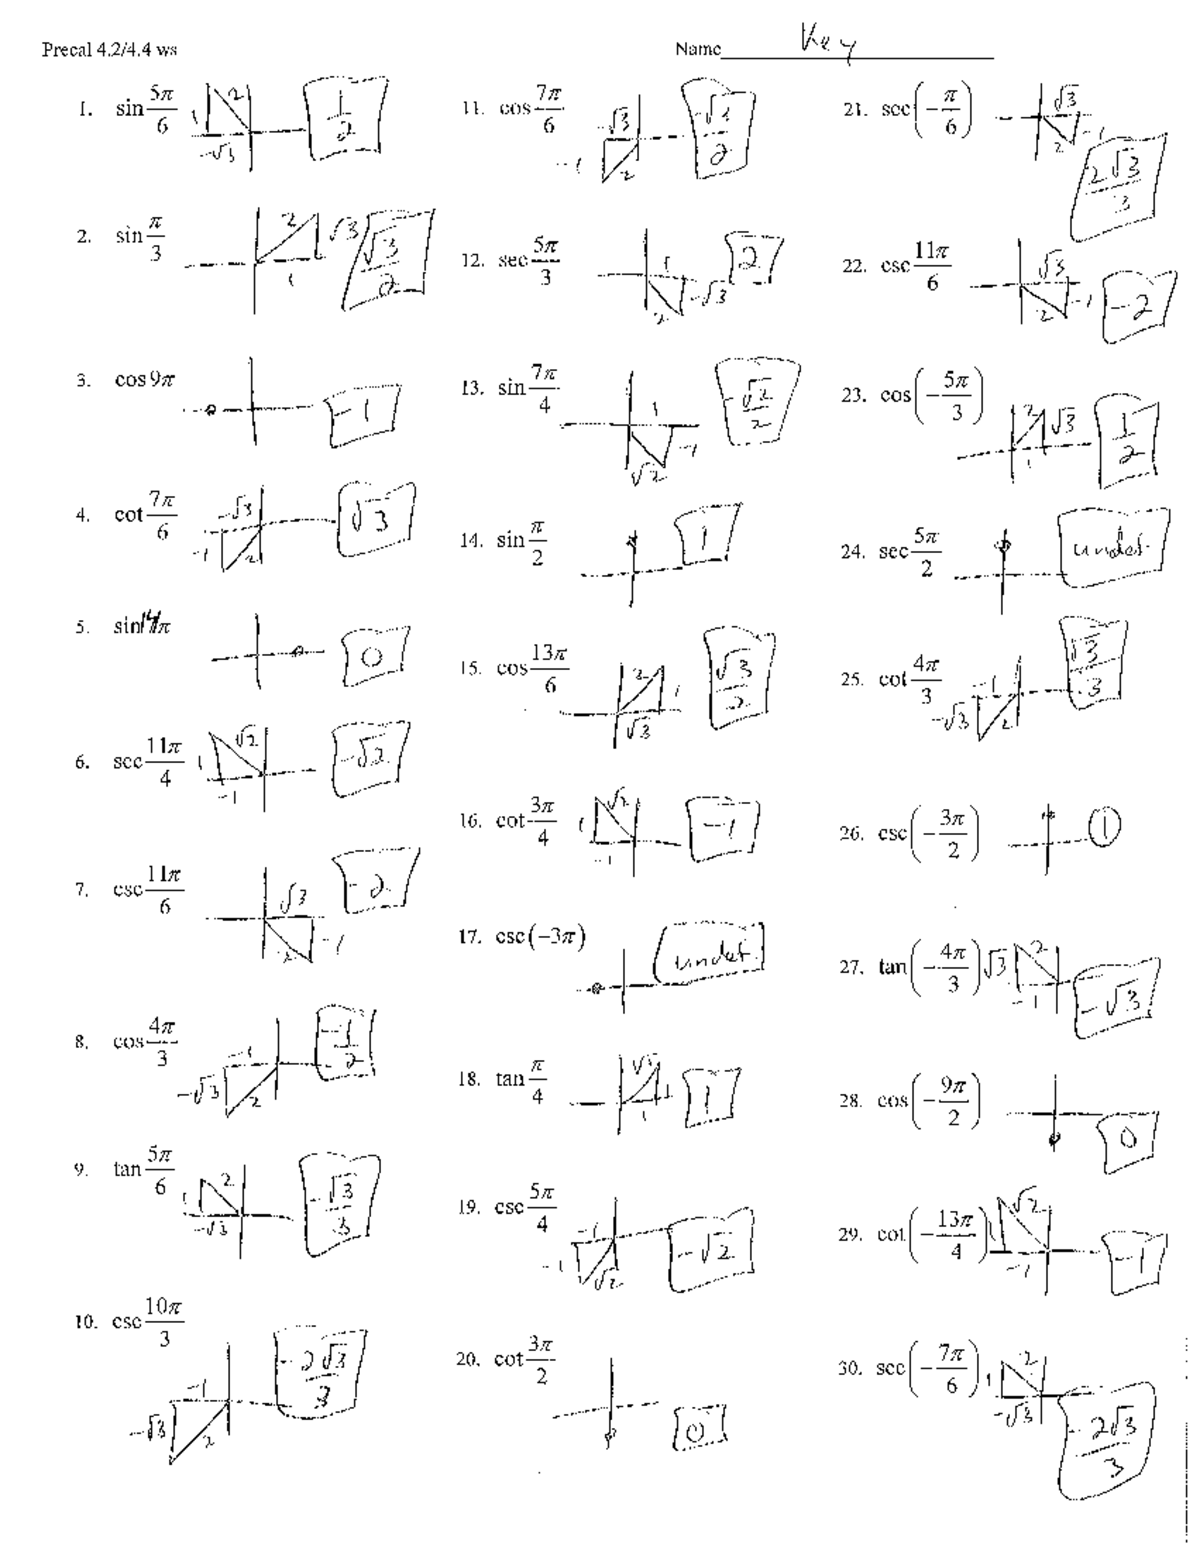 Precal 4.2/4.4 ws Name Key
1. sin 5π/6 1 2 -√3 1/2
2. sin π/3 2 √3 1 √3/2
3. cos 9π -1
4. cot 7π/6 -√3 -1 2 √3
5. sin 14π 0
6. sec 11π/4 1 √2 -1 -√2
7. csc 11π/6 √3 -1 2 -2
8. cos 4π/3 -1 -√3 2 -1/2
9. tan 5π/6 1 2 -√3 -√3/3
10. csc 10π/3 -1 -√3 2 -2√3/3
11. cos 7π/6 -√3 -1 2 -√3/2
12. sec 5π/3 1 -√3 2 2
13. sin 7π/4 1 -1 √2 -√2/2
14. sin π/2 1
15. cos 13π/6 2 1 √3 √3/2
16. cot 3π/4 1 √2 -1 -1
17. csc(-3π) undef.
18. tan π/4 √2 1 1 1
19. csc 5π/4 -1 -1 √2 -√2
20. cot 3π/2 0
21. sec(-π/6) √3 -1 2 2√3/3
22. csc 11π/6 √3 -1 2 -2
23. cos(-5π/3) 2 √3 1 1/2
24. sec 5π/2 undef.
25. cot 4π/3 -1 -√3 2 √3/3
26. csc(-3π/2) 1
27. tan(-4π/3) √3 2 -1 -√3
28. cos(-9π/2) 0
29. cot(-13π/4) 1 √2 -1 -1
30. sec(-7π/6) 1 2 -√3 -2√3/3